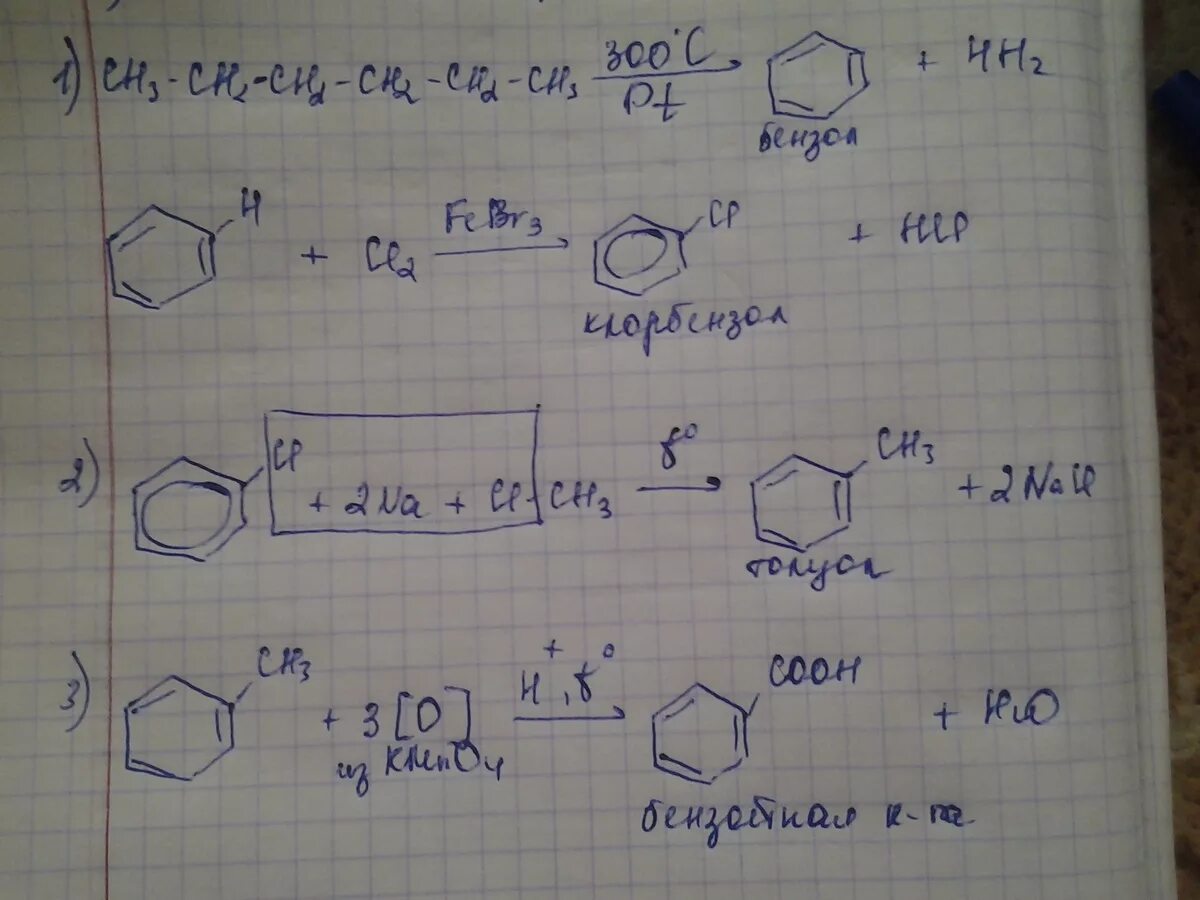 1) CH3-CH2-CH2-CH2-CH2-CH3 300°C Pt + 4H2
бензол
H + Cl2 FeBr3 Cl + HCl
хлорбензол
2) Cl + 2Na + Cl-CH3 t° CH3 + 2NaCl
толуол
3) CH3 + 3[O] H+, t° COOH + H2O
из KMnO4
бензойная к-та